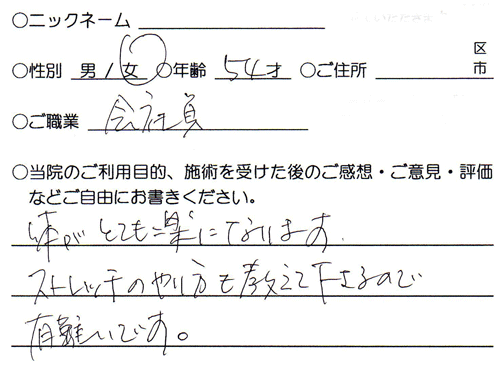 ○ニックネーム
○性別 男 / 女 ○年齢 54才 ○ご住所 区 市
○ご職業 会社員
○当院のご利用目的、施術を受けた後のご感想・ご意見・評価
などご自由にお書きください。
体がとても楽になります。
ストレッチのやり方も教えて下さるので
有難いです。